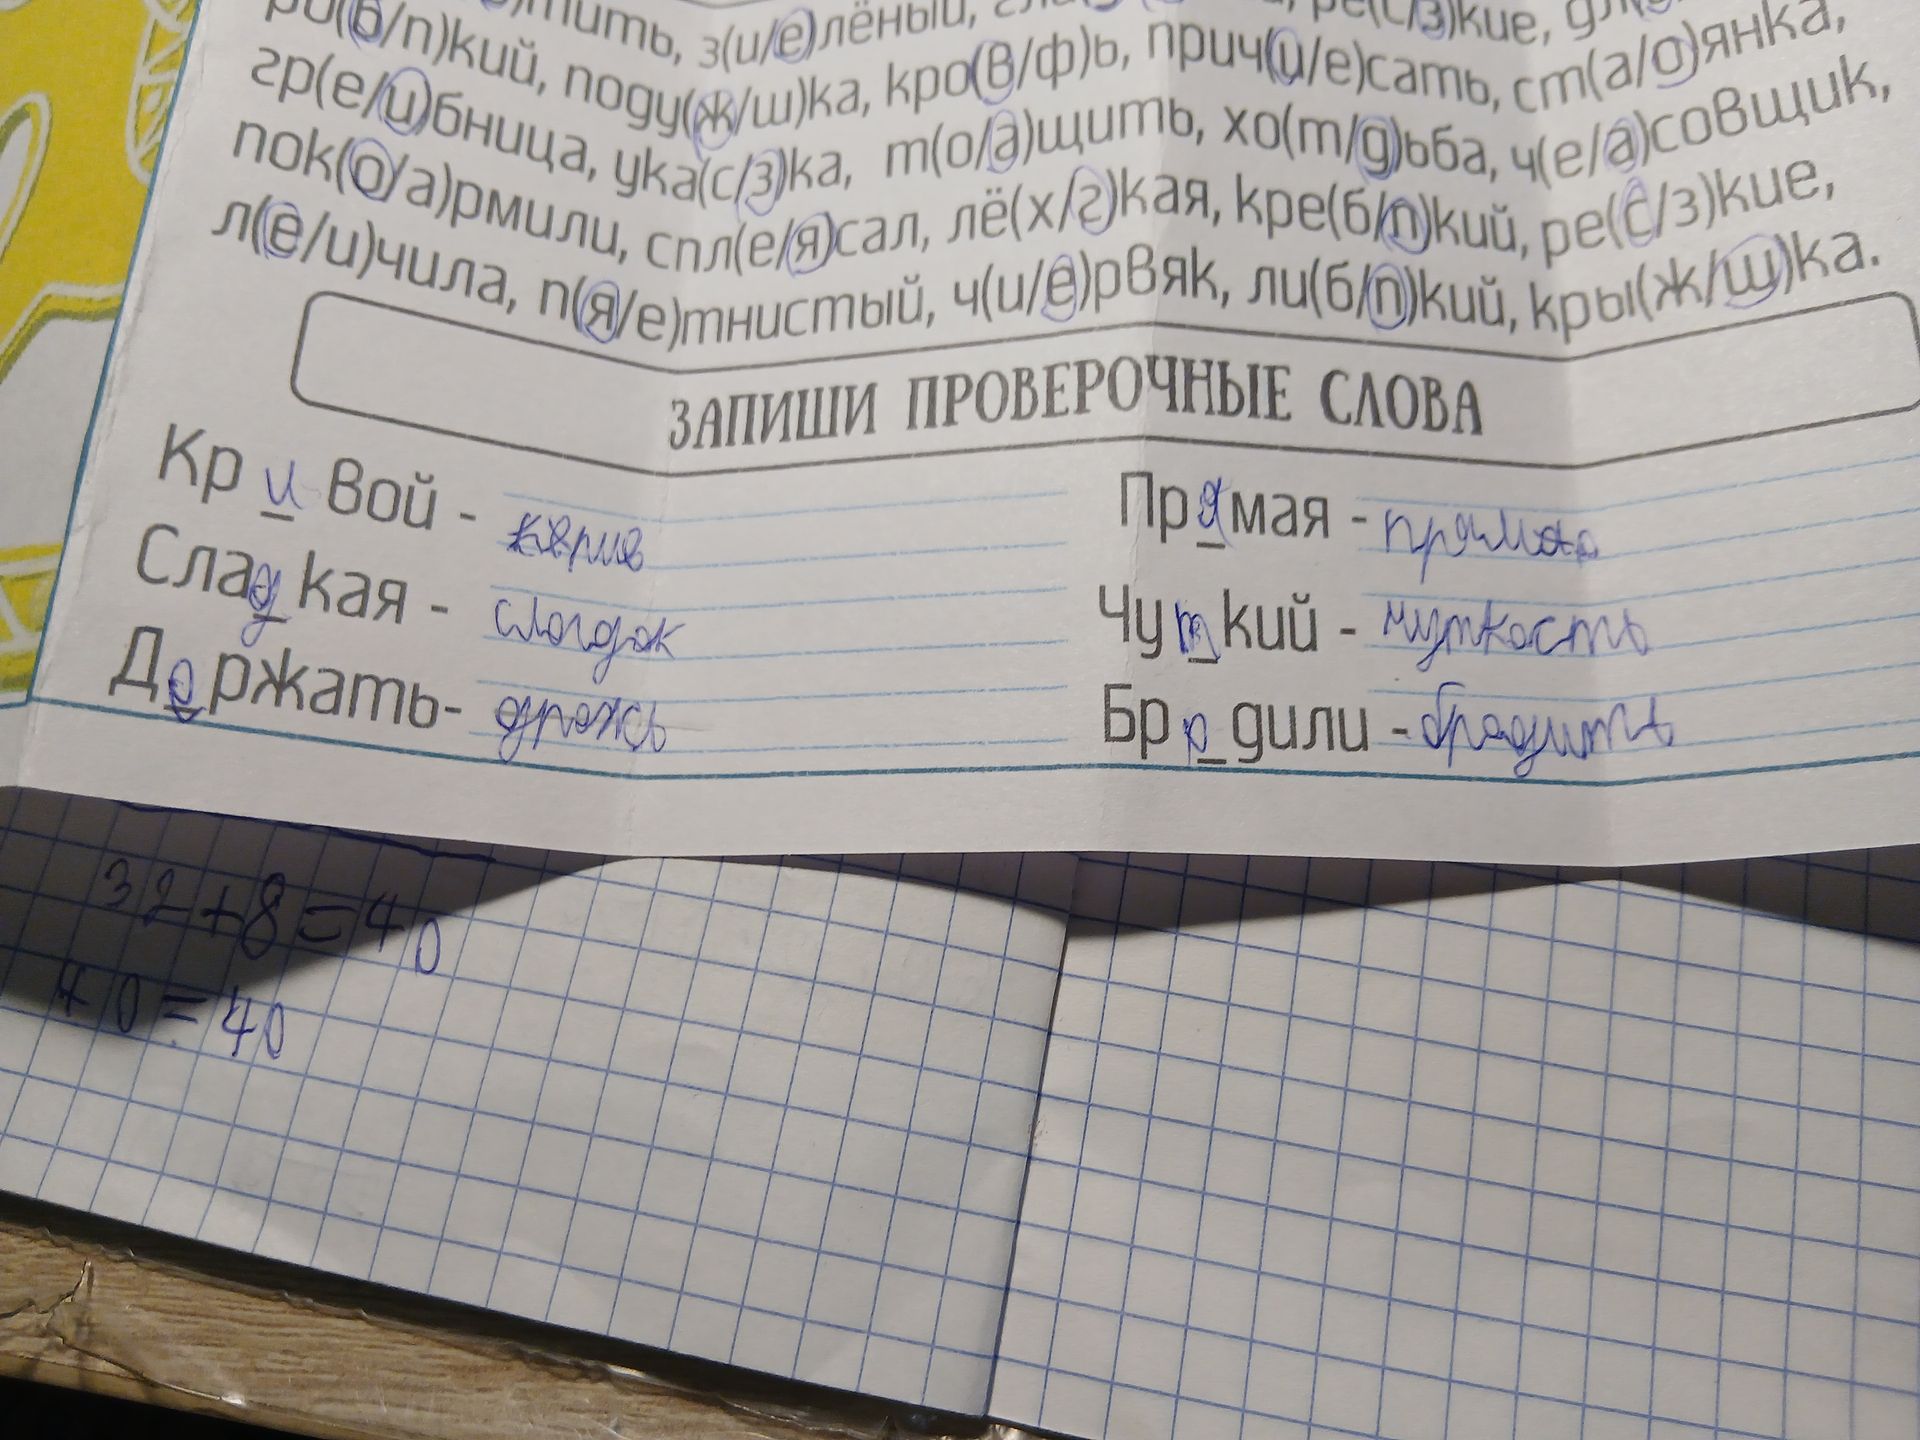 тить, з(и/е)лёный, ре(с/з)кие,
(б/п)кий, поду(ж/ш)ка, кро(в/ф)ь, прич(и/е)сать, ст(а/о)янка,
гр(е/и)бница, ука(с/з)ка, т(о/а)щить, хо(т/д)ьба, ч(е/а)совщик,
пок(о/а)рмили, спл(е/я)сал, лё(х/г)кая, кре(б/п)кий, ре(с/з)кие,
л(е/и)чила, п(я/е)тнистый, ч(и/е)рвяк, ли(б/п)кий, кры(ж/ш)ка.
ЗАПИШИ ПРОВЕРОЧНЫЕ СЛОВА
Кривой - Прямая - прямо
Сладкая - сладок Чуткий - чуткость
Держать- Бродили - бродить
32+8=40
40=40